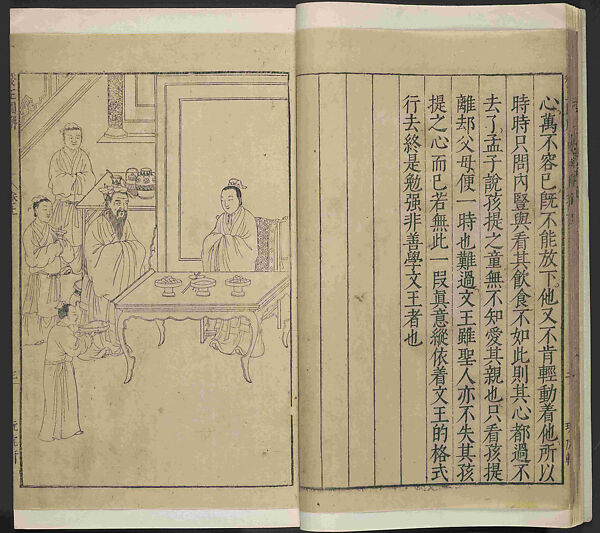 心萬不容已旣不能放下他又不肯輕動着他所以
時時只問內豎與看其飲食不如此則其心都過不
去了孟子說孩提之童無不知愛其親也只看孩提
離却父母便一時也難過文王雖聖人亦不失其孩
提之心而已若無此一叚眞意縱依着文王的格式
行去終是勉强非善學文王者也